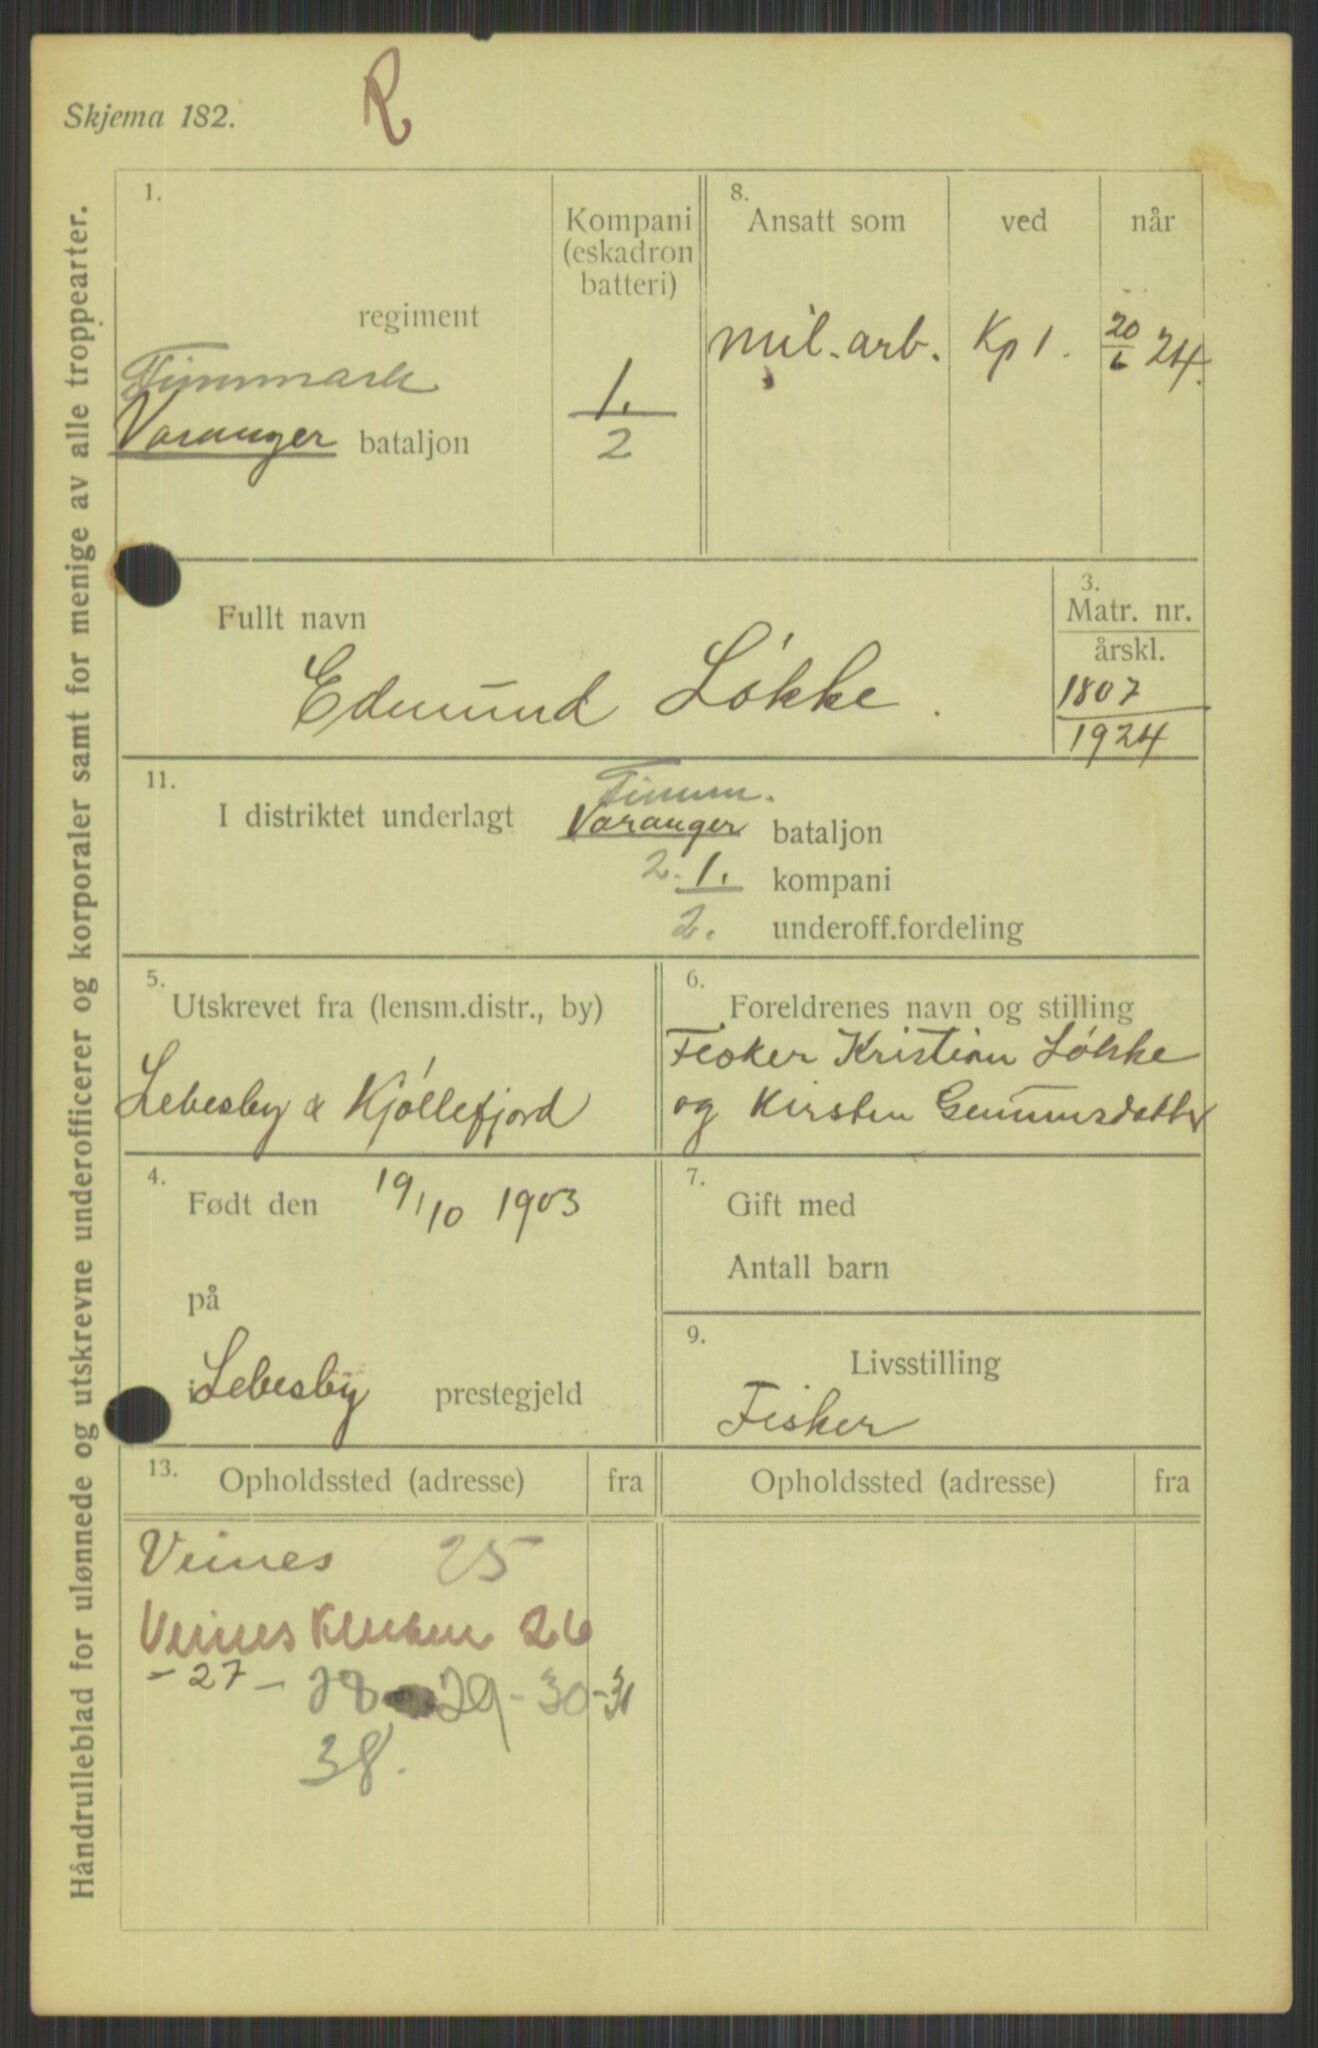 Skjema 182.
R
Håndrulleblad for ulønnede og utskrevne underofficerer og korporaler samt for menige av alle troppearter.
1.
regiment
Finnmark
Varanger bataljon
Kompani
(eskadron
batteri)
1.
2
8.
Ansatt som
ved
når
mil. arb.
Kp 1.
20/6 24.
Fullt navn
Edmund Løkke.
3.
Matr. nr.
årskl.
1807
1924
11.
Finnm.
I distriktet underlagt Varanger bataljon
2. 1. kompani
2. underoff.fordeling
5.
Utskrevet fra (lensm.distr., by)
Lebesby & Kjøllefjord
6.
Foreldrenes navn og stilling
Fisker Kristian Løkke
og Kirsten
4.
Født den 19/10 1903
på
i Lebesby prestegjeld
7.
Gift med
Antall barn
9.
Livsstilling
Fisker
13.
Opholdssted (adresse)
fra
Opholdssted (adresse)
fra
Veines 25
Veines 26
- 27 - 28 29 - 30 - 31
38.